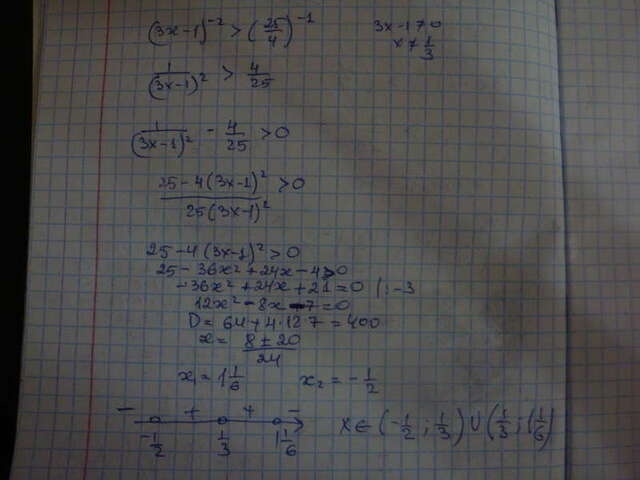 (3x-1)⁻² > (25/4)⁻¹
3x-1≠0
x≠1/3
1/(3x-1)² > 4/25
1/(3x-1)² - 4/25 > 0
(25-4(3x-1)²)/(25(3x-1)²) > 0
25-4(3x-1)² > 0
25-36x²+24x-4>0
-36x²+24x+21=0 |:-3
12x²-8x-7=0
D=64+4·12·7=400
x=(8±20)/24
x₁=1 1/6 x₂=-1/2
- + + -
-1/2 1/3 1 1/6
x∈(-1/2; 1/3)∪(1/3; 1 1/6)